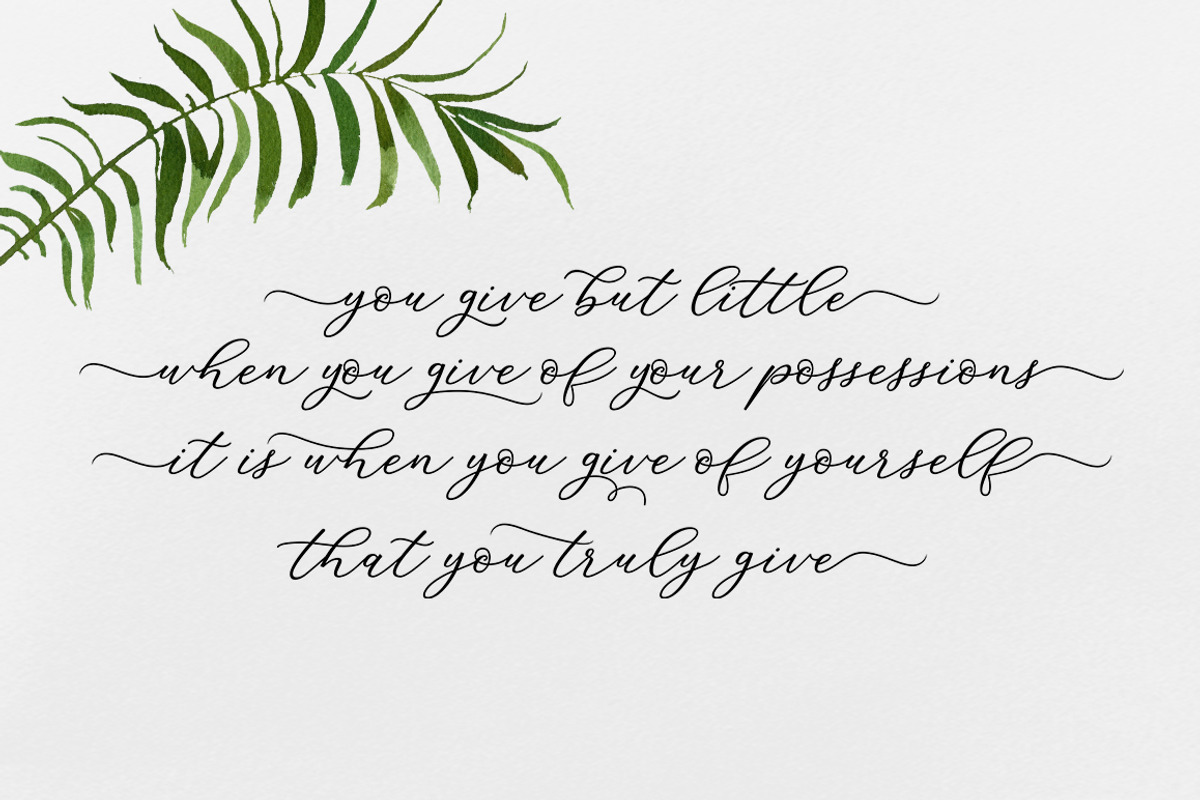 you give but little
when you give of your possessions
it is when you give of yourself
that you truly give